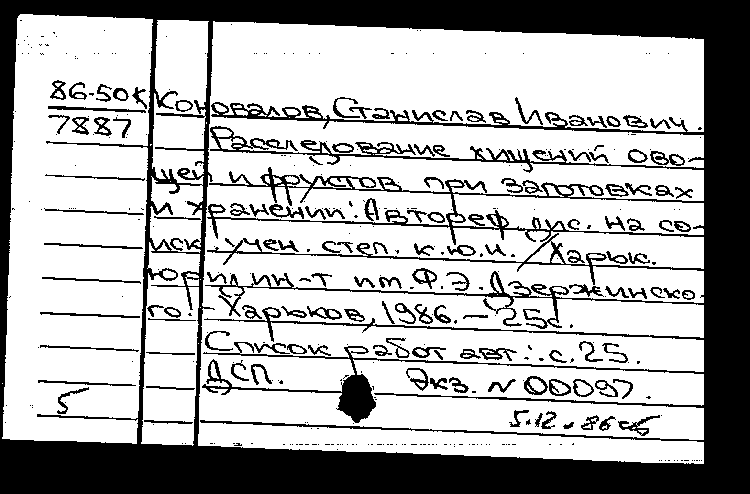 86-50К Коновалов, Станислав Иванович.
7887 Расследование хищений ово-
щей и фруктов при заготовках
и хранении: Автореф. дис. на со-
иск. учен. степ. к.ю.н. / Харьк.
юрид. ин-т им. Ф.Э. Дзержинско-
го. - Харьков, 1986. - 25с.
Список работ авт.: с. 25.
ДСП. Экз. N 00097.
5 5.12.86